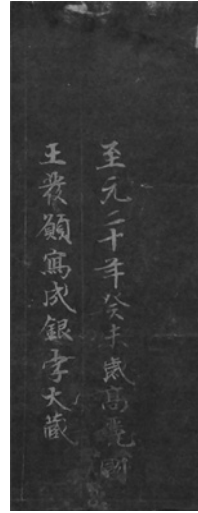 至元二十年癸未歳高麗國
王發願寫成銀字大藏